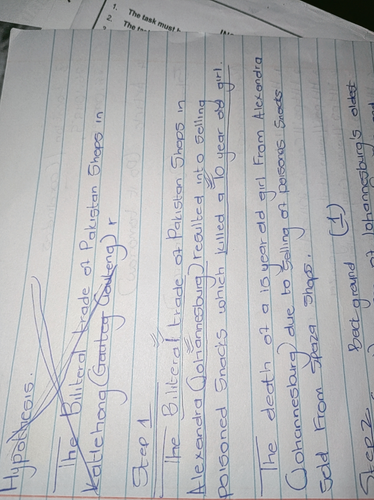 1. The task must
2. The
Hypothesis.
The Biliteral trade of Pakistan Shops in
Katlehong (Gauteg Gauteng) r
Step 1
The Biliteral trade of Pakistan Shops in
Alexandra (Johannesburg) resulted into selling
poisoned snacks which killed a 10 year old girl.
The death of a 15 year old girl From Alexandra
(Johannesburg) due to selling of poisons snacks
sold From Spaza shops.
Background (1)
Step 2
of Johannesburg's oldest